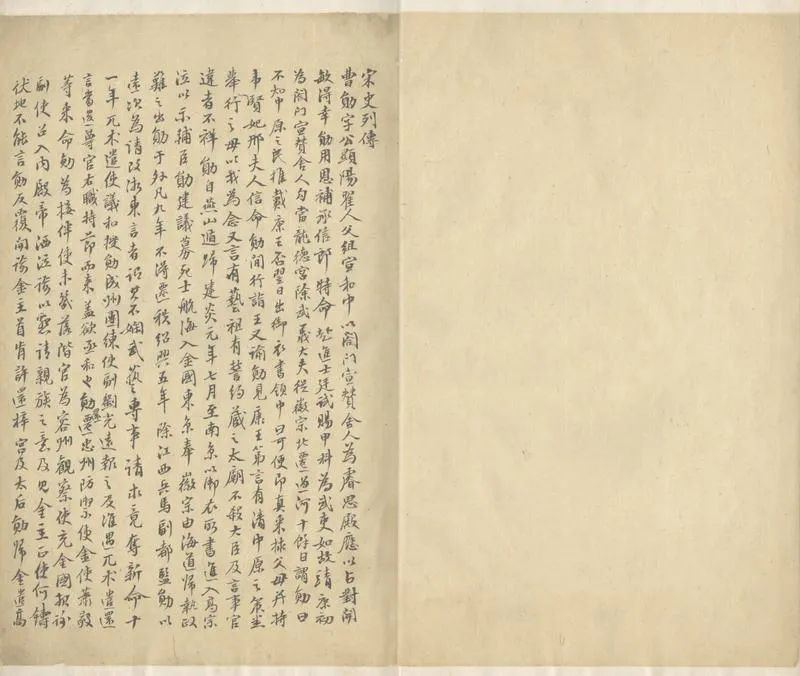 宋史列傳
曹勛字公顯陽翟人父組宣和中以閤門宣贊舍人為睿思殿應以占對開
敏得幸勛用恩補承信郎特命赴進士廷試賜甲科為武吏如故靖康初
為閤門宣贊舍人勾當龍德宮除武義大夫從徽宗北遷過河十餘日謂勛曰
不知中原之民推戴康王否翌日出御衣書領中曰可便即真來捄父母并持
韋賢妃邢夫人信命勛間行詣王又諭勛見康王第言有清中原之策悉
舉行之毋以我為念又言有藝祖有誓約藏之太廟不殺大臣及言事官
違者不祥勛自燕山遁歸建炎元年七月至南京以御衣所書進入高宗
泣以示輔臣勛建議募死士航海入金國東京奉徽宗由海道歸執政
難之出勛于外凡九年不得遷秩紹興五年除江西兵馬副都監勛以
遠次為請改浙東言者論其不嫻武藝專事請求竟奪新命十
一年兀术遣使議和授勛成州團練使副劉光遠報之及淮遇兀术遣還
言當遣尊官右職持節而來蓋欲亟和也勛還遷忠州防禦使金使蕭毅
等來命勛為接伴使未幾落階官為容州觀察使充金國報謝
副使召入內殿帝洒泣諭以懇請親族之意及見金主正使何鑄
伏地不能言勛反覆開諭金主首肯許還梓宮及太后勛歸金遣高